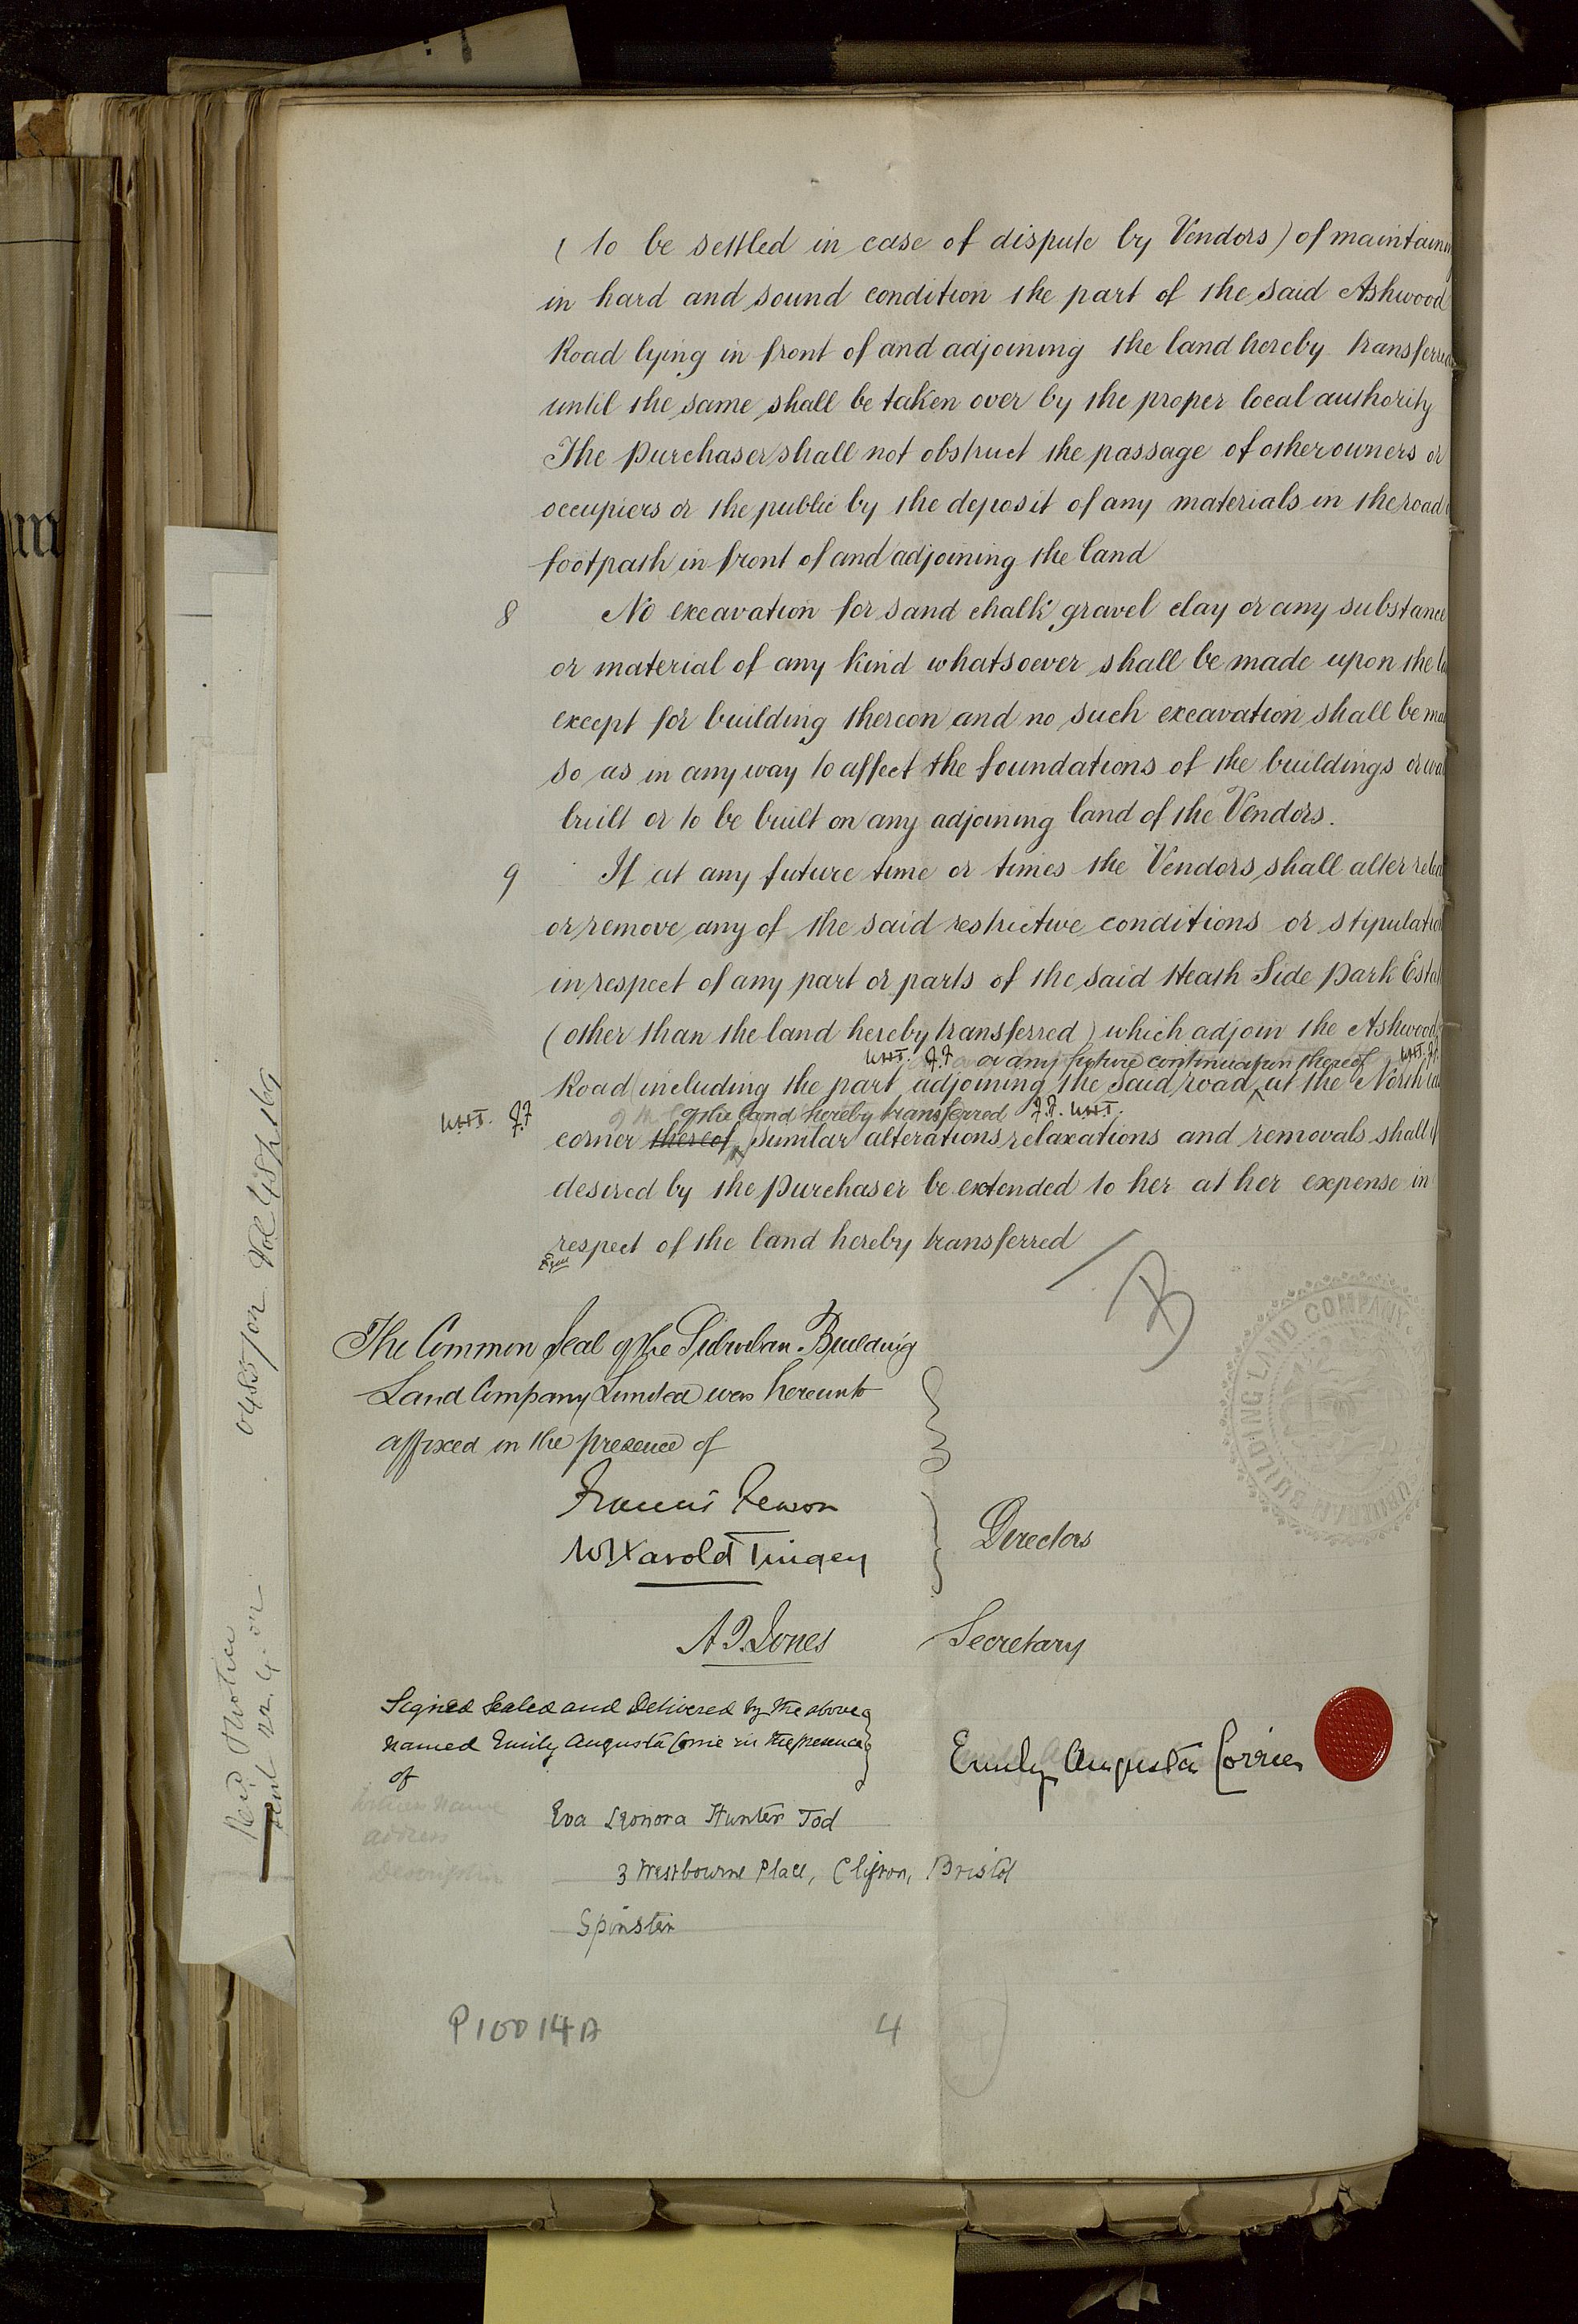 ( to be settled in case of dispute by Vendors) of maintaining
in hard and sound condition the part of the said Ashwood
Road lying in front of and adjoining the land hereby transferred
until the same shall be taken over by the proper local authority
The Purchaser shall not obstruct the passage of other owners or
occupiers or the public by the deposit of any materials in the road
footpath in front of and adjoining the land
8 No excavation for sand chalk gravel clay or any substance
or material of any kind whatsoever shall be made upon the
except for building thereon and no such excavation shall be
so as in any way to affect the foundations of the buildings or
built or to be built on any adjoining land of the Vendors.
9 If at any future time or times the Vendors shall alter
or remove any of the said restrictive conditions or stipulation
in respect of any part or parts of the said Heath Side Park
(other than the land hereby transferred) which adjoin the Ashwood
WHT. F.F or any future continuation thereof WHT. F.F.
Road (including the part adjoining the said road at the North
WHT. F.F of the land hereby transferred F.F. WHT.
corner thereof) similar alterations relaxations and removals shall if
desired by the Purchaser be extended to her at her expense in
respect of the land hereby transferred
B
The Common Seal of the Suburban Building
Land Company Limited was hereunto
affixed in the presence of
BUILDING LAND COMPANY
Francis Fewson
W Harold Tingey
Directors
A.P. Jones Secretary
Signed Sealed and Delivered by the above
named Emily Augusta Corrie in the presence
of
Emily Augusta Corrie
witness name
address
Description
Eva Leonora Hunter Tod
3 Westbourne Place, Clifton, Bristol
Spinster
P10014A 4